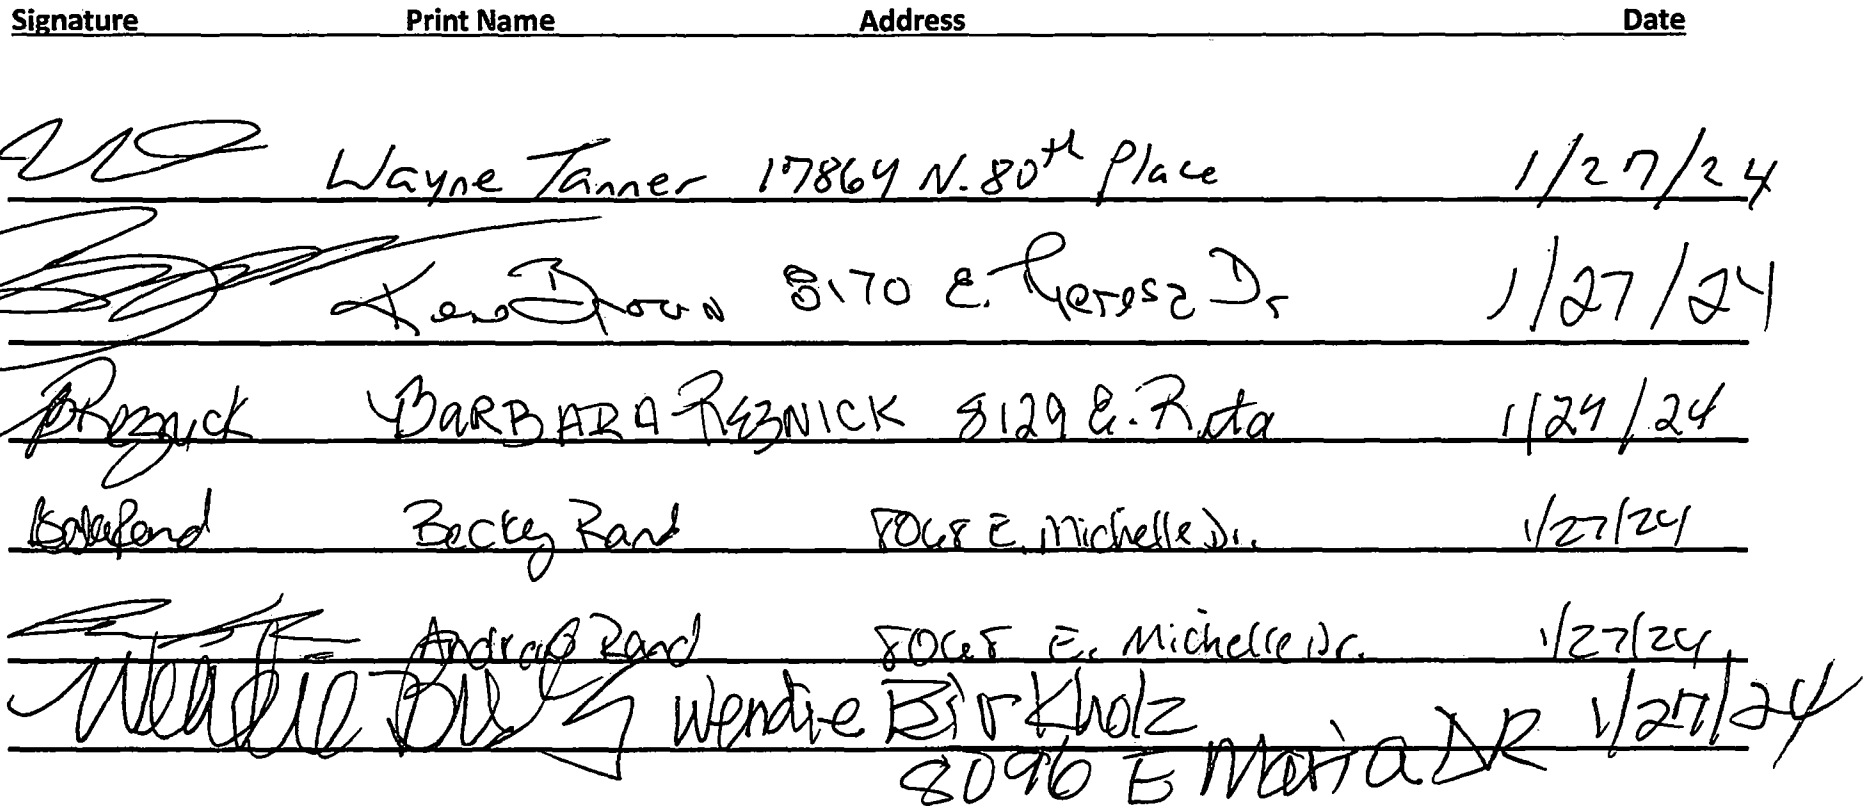 Signature Print Name Address Date
Wayne Tanner 17864 N. 80th Place 1/27/24
Ken Brown 8170 E. Theresa Dr 1/27/24
BReznick BARBARA REZNICK 8129 E. Rita 1/27/24
Becky Rand 8068 E. Michelle Dr. 1/27/24
Rand 8068 E. Michelle Dr. 1/27/24
Wendie Wendie Birkholz 1/27/24
8096 E Maria DR